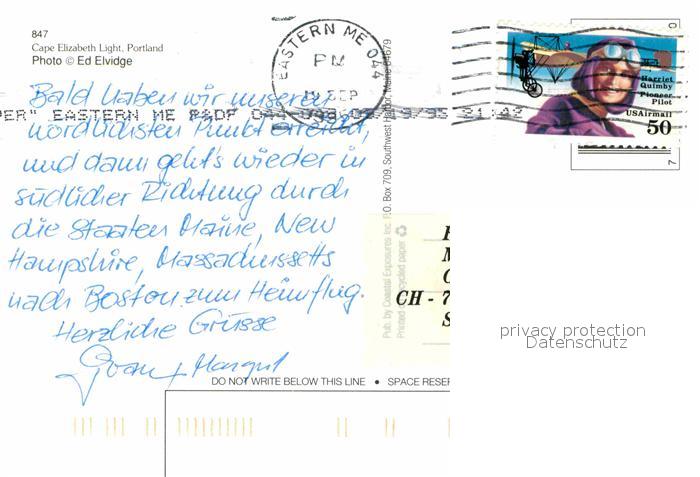 847
Cape Elizabeth Light, Portland
Photo © Ed Elvidge
EASTERN ME 044
PM
19 SEP
PER" EASTERN ME P&DF 044 09/19/95 21:42
Harriet
Quimby
Pioneer
Pilot
USAirmail
50
Bald haben wir unseren
nördlichsten Punkt erreicht,
und dann geht's wieder in
südlicher Richtung durch
die Staaten Maine, New
Hampshire, Massachusetts
nach Boston zum Heimflug.
Herzliche Grüsse
+ Margrit
Pub. by Coastal Exposures Inc. P.O. Box 709, Southwest Harbor, Maine 04679
Printed recycled paper
CH - 7
privacy protection
Datenschutz
DO NOT WRITE BELOW THIS LINE • SPACE RESER